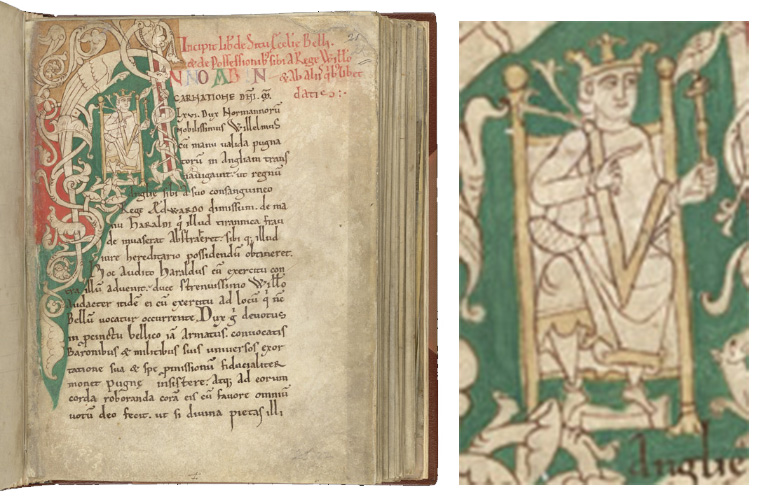 Incipit lib de Situ Ecclie Belli.
& de Possessionib sibi a Rege Willo
& ab aliis qb libet
datis:
ANNO AB IN
CARNATIONE DNI. M.
LXVI. Dux Normannorū
nobilissimus Willelmus
cū manu valida pugna
torū in Angliam trans
navigavit. ut regnū
Anglie sibi a suo consanguineo
Rege Ædwardo dimissum. de ma
nu Haraldi q illud tirannica frau
de invaserat abstraheret. sibi q, illud
iure hereditario possidendū obtineret.
Hoc Audito Haraldus cū exercitu con
tra illū advenit. duce strenuissimo Willo
audacter itidē ei cū exercitu ad locū q nc
Bellū vocatur occurrente. Dux g devotus
in peinctu bellico iā armatus. convocatis
Baronibus & militibus suis universos exor
tatione sua & spe pmissionū fiducialiter
monet pugne insistere. Atq, ad eorum
corda roboranda corā eis cū favore omniū
votū deo fecit. ut si divina pietas illi
Anglie